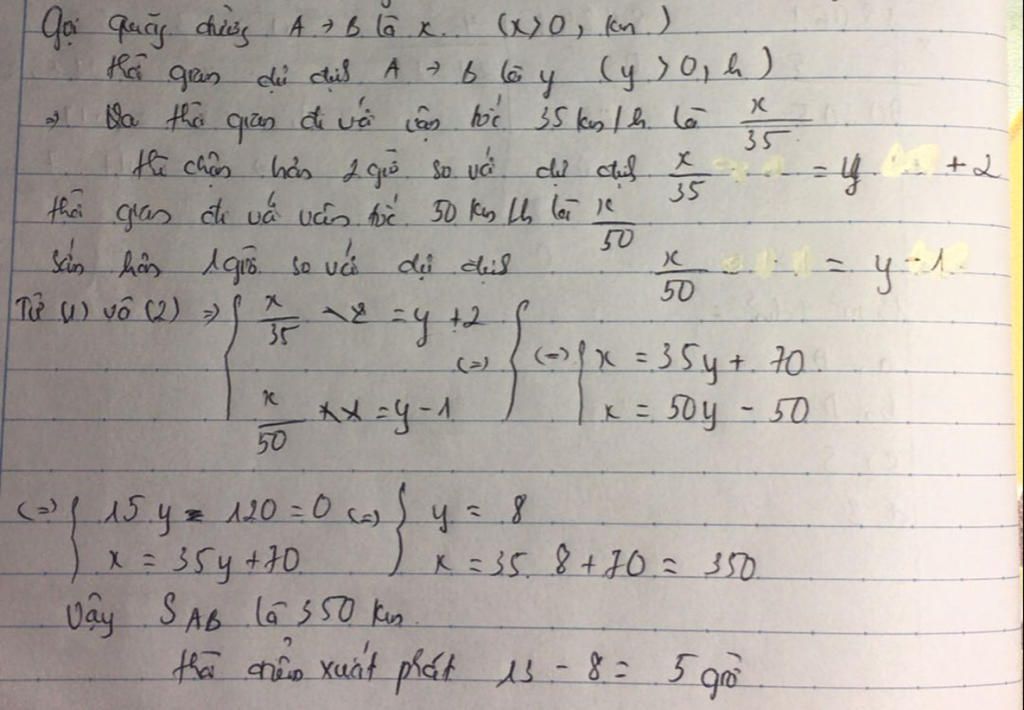 Gọi quãng đường A → B là x. (x > 0, km)
thời gian dự định A → B là y (y > 0, h)
⇒ thời gian đi với vận tốc 35 km/h là x/35
thì chậm hơn 2 giờ so với dự định x/35 = y + 2
thời gian đi với vận tốc 50 km/h là x/50
sớm hơn 1 giờ so với dự định x/50 = y - 1
Từ (1) và (2) ⇒ { x/35 = y + 2 (=) { (=) { x = 35y + 70
x/50 = y - 1 x = 50y - 50
(=) { 15y - 120 = 0 (=) { y = 8
x = 35y + 70 x = 35. 8 + 70 = 350
Vậy S AB là 350 km
thời điểm xuất phát 13 - 8 = 5 giờ